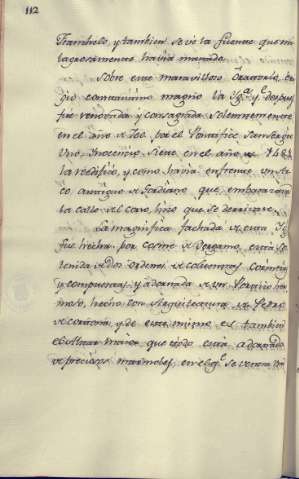 112
Trambulo, y tambien se vè la fuente que mi
lagrosamente havia manado.
Sobre este maravilloso Oratorio, eri
giò Constantino magno la Ygª y despues
fuè renovada y consagrada solemnemente
en el año de 700. por el Pontifice San Sergio
Uno. Inocencio Siete en el año de 1484
la redificò, y como havia enfrente un Ar
co antiguo de Gordiano que embarazava
la calle del Corso, hizo que se derrivase.
La magnifica fachada de esta Ygª
fuè hecha por Cosme de Bergamo, està sos
tenida de dos ordenes de columnas corintias
y compuestas, y adornada de un Portico her
moso, hecho con Arquitectura de Pedro
de Cortona, y de este mismo es tambien
el Altar maior que todo està adornado
de preciosos marmoles, en el qᵉ se venera una